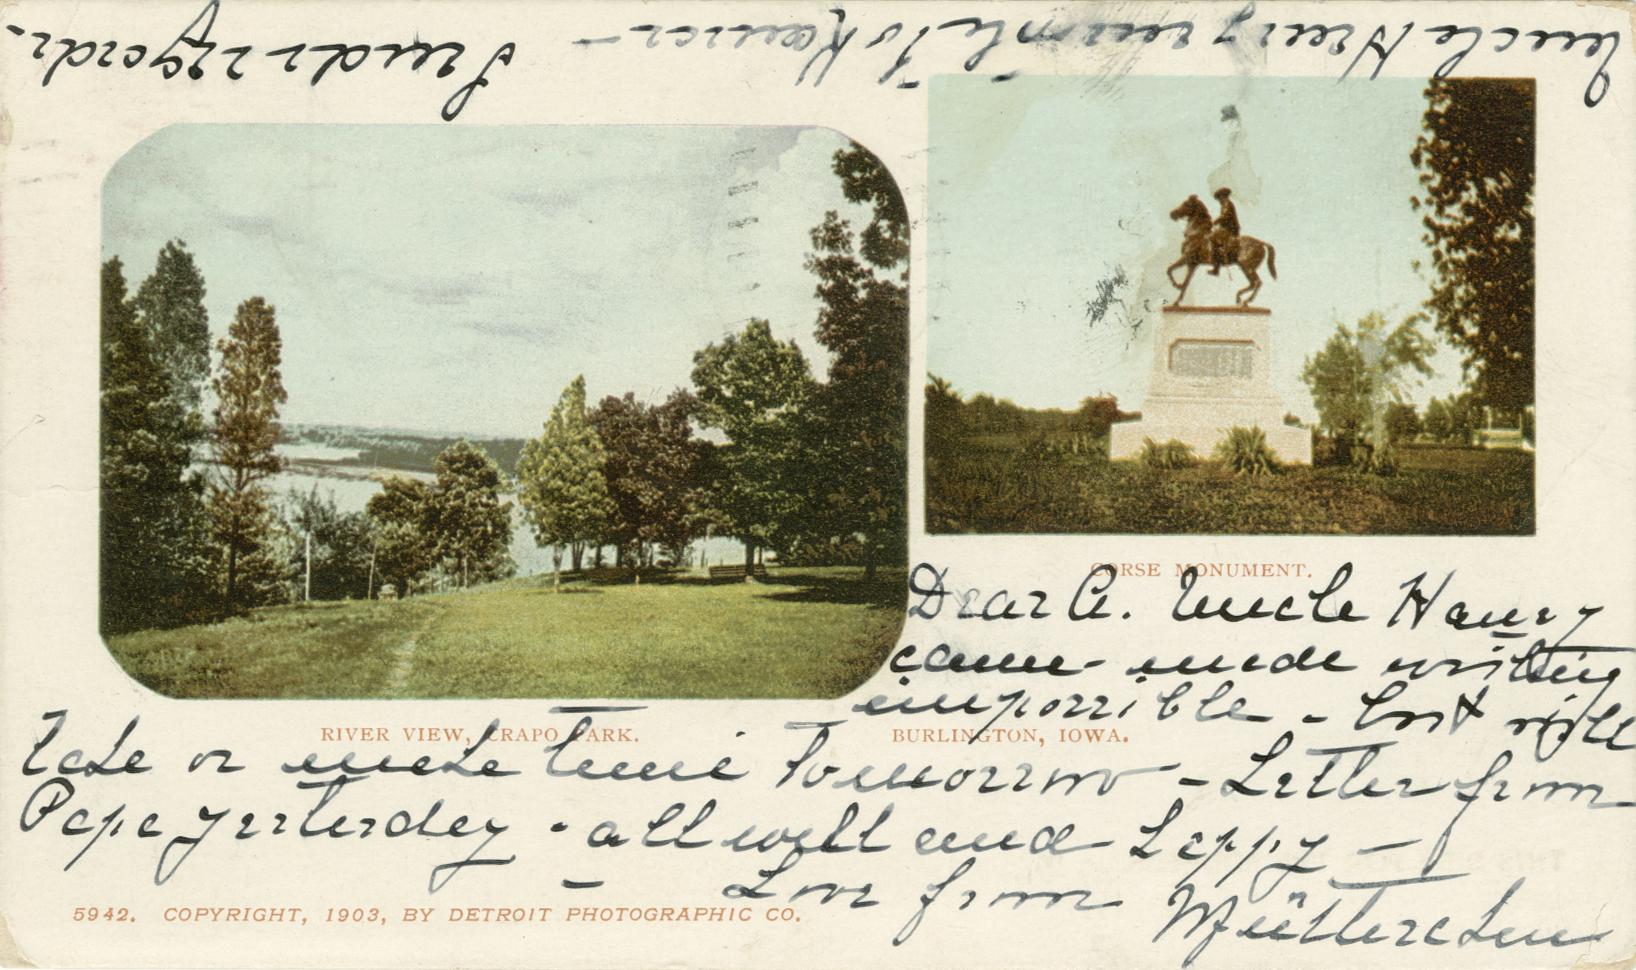 Uncle Henry wants to Kansas –
Sends regards.
CORSE MONUMENT.
Dear A. Uncle Henry
came – made writing
impossible – but will
RIVER VIEW, CRAPO PARK.
BURLINGTON, IOWA.
take or make time Tomorrow – Letter from
Papa yesterday – all well and happy –
– Love from
Mütterchen
5942. COPYRIGHT, 1903, BY DETROIT PHOTOGRAPHIC CO.